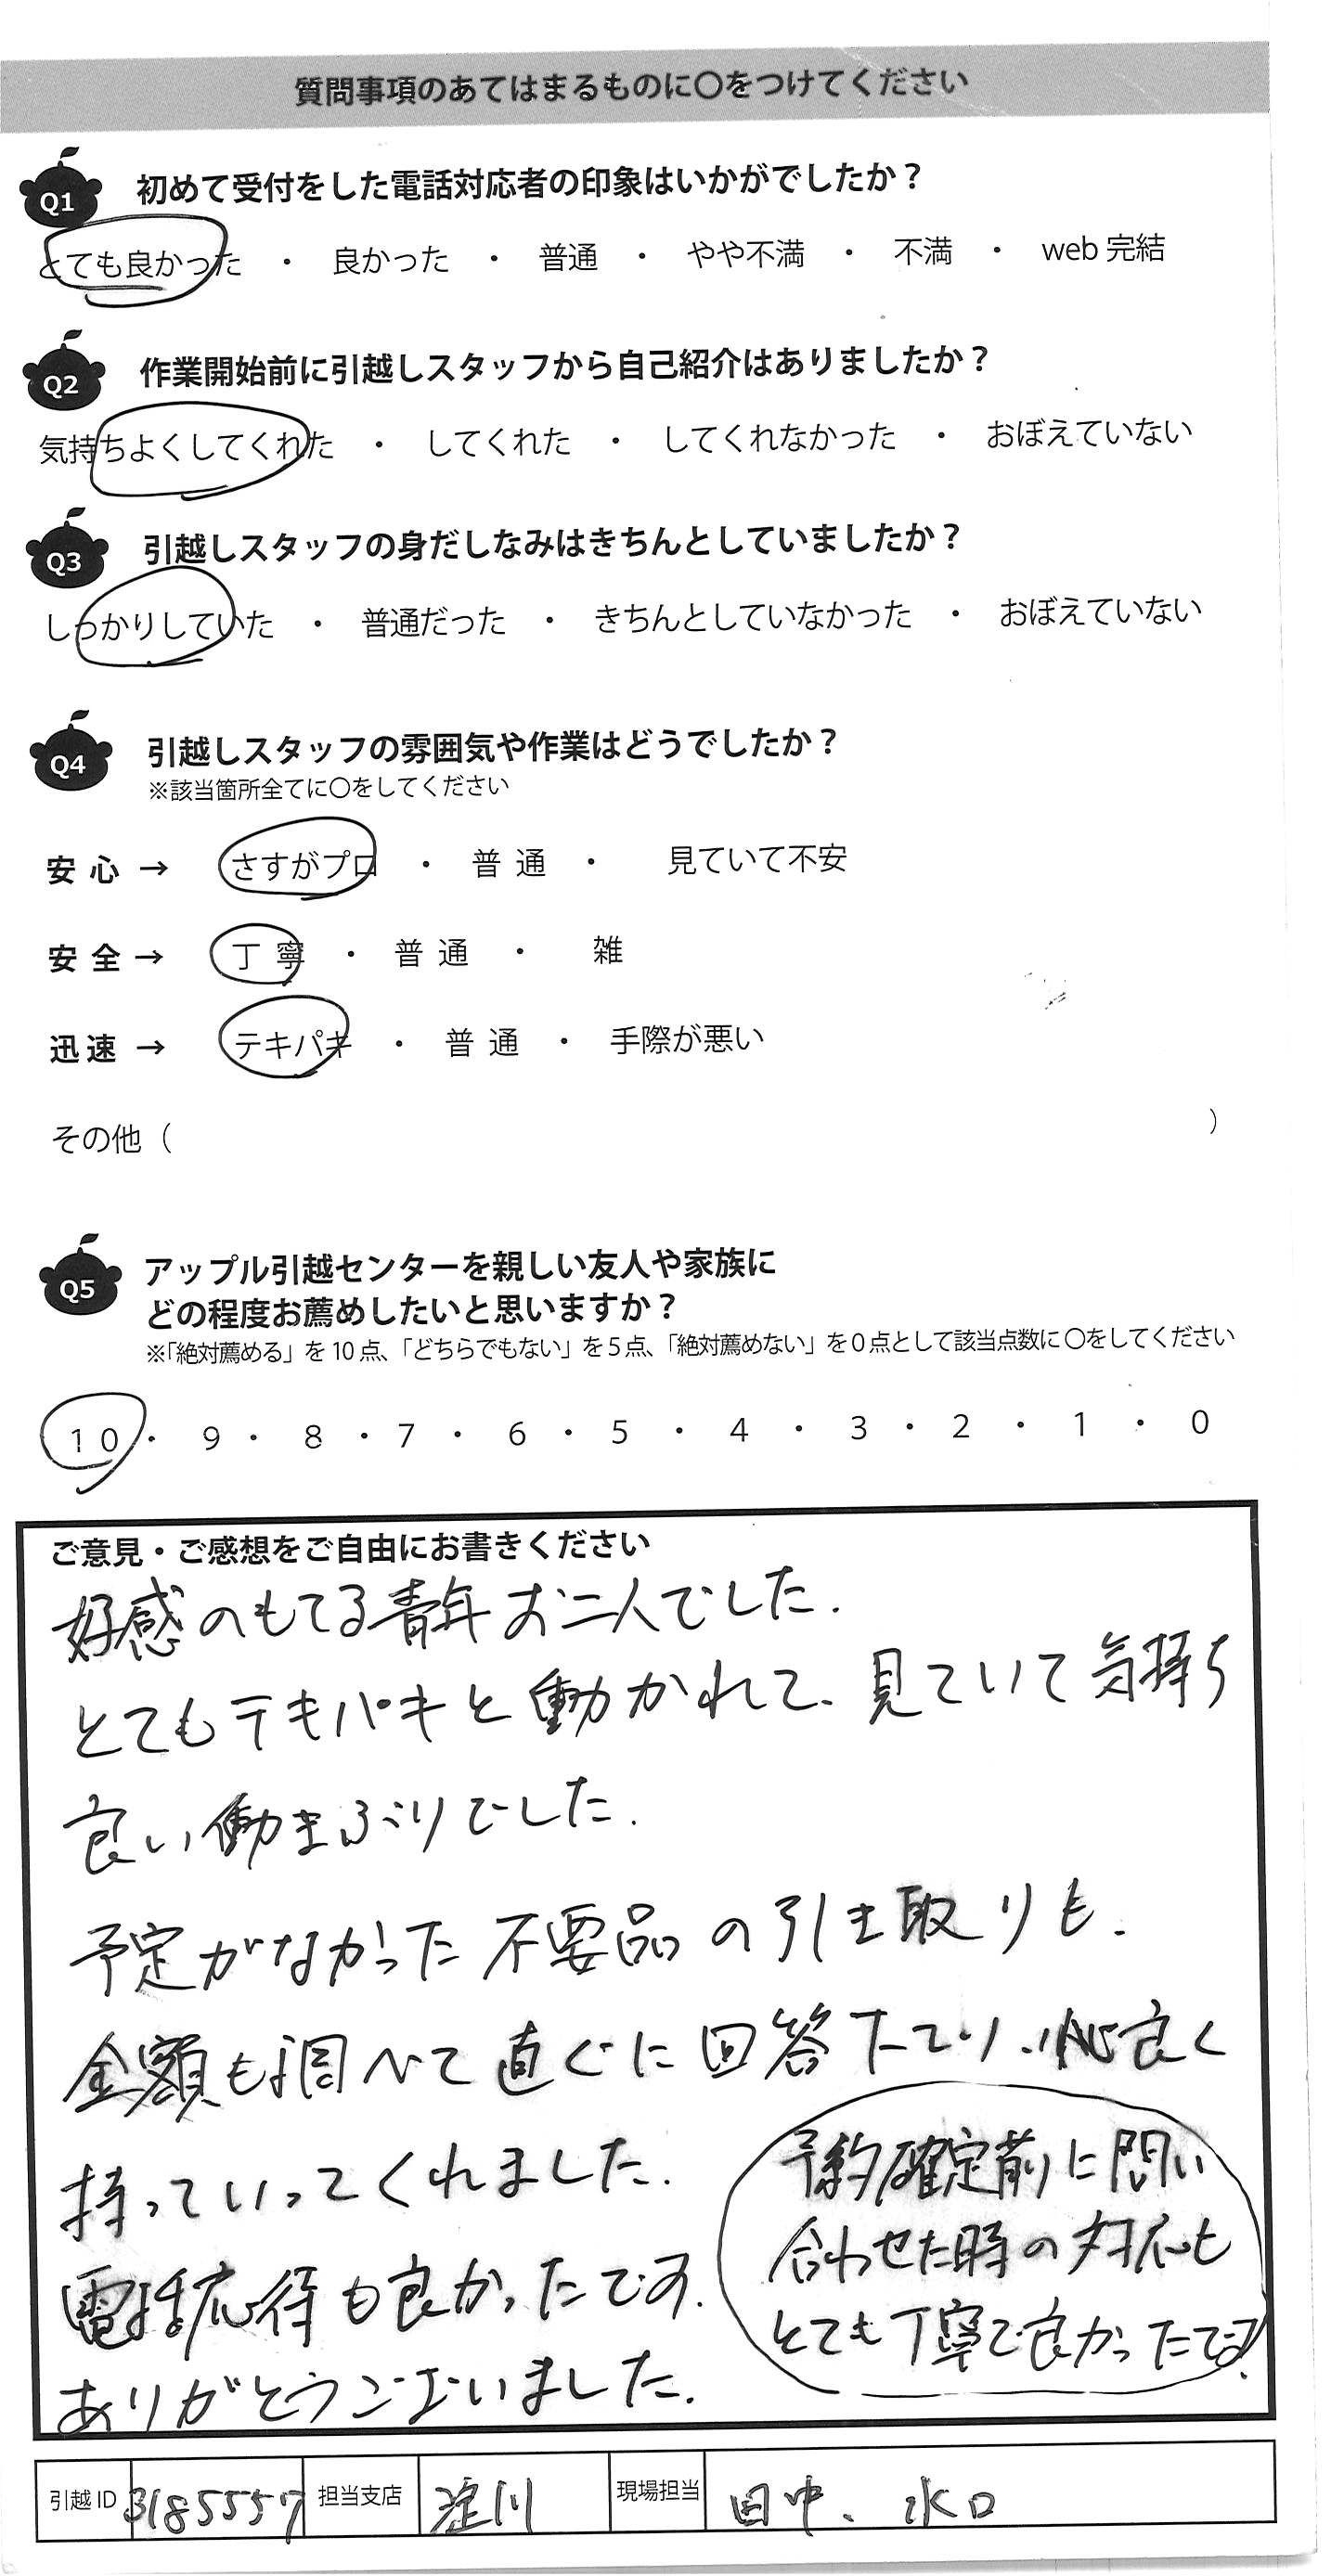 質問事項のあてはまるものに〇をつけてください
Q1 初めて受付をした電話対応者の印象はいかがでしたか？
とても良かった ・ 良かった ・ 普通 ・ やや不満 ・ 不満 ・ web 完結
Q2 作業開始前に引越しスタッフから自己紹介はありましたか？
気持ちよくしてくれた ・ してくれた ・ してくれなかった ・ おぼえていない
Q3 引越しスタッフの身だしなみはきちんとしていましたか？
しっかりしていた ・ 普通だった ・ きちんとしていなかった ・ おぼえていない
Q4 引越しスタッフの雰囲気や作業はどうでしたか？
※該当箇所全てに〇をしてください
安 心 → さすがプロ ・ 普 通 ・ 見ていて不安
安 全 → 丁 寧 ・ 普 通 ・ 雑
迅 速 → テキパキ ・ 普 通 ・ 手際が悪い
その他（ ）
Q5 アップル引越センターを親しい友人や家族に
どの程度お薦めしたいと思いますか？
※「絶対薦める」を 10 点、「どちらでもない」を 5 点、「絶対薦めない」を 0 点として該当点数に 〇をしてください
10 ・ 9 ・ 8 ・ 7 ・ 6 ・ 5 ・ 4 ・ 3 ・ 2 ・ 1 ・ 0
ご意見・ご感想をご自由にお書きください
好感のもてる青年お二人でした.
とてもテキパキと動かれて、見ていて気持ち
良い働きぶりでした.
予定がなかった不要品の引き取りも、
金額も調べて直ぐに回答たてり、心良く
持っていってくれました.
電話応待も良かったです.
ありがとうございました.
予約確定前に問い
合わせた時の対応も
とても丁寧で良かったです.
引越 ID 3185557 担当支店 淀川 現場担当 田中、水口